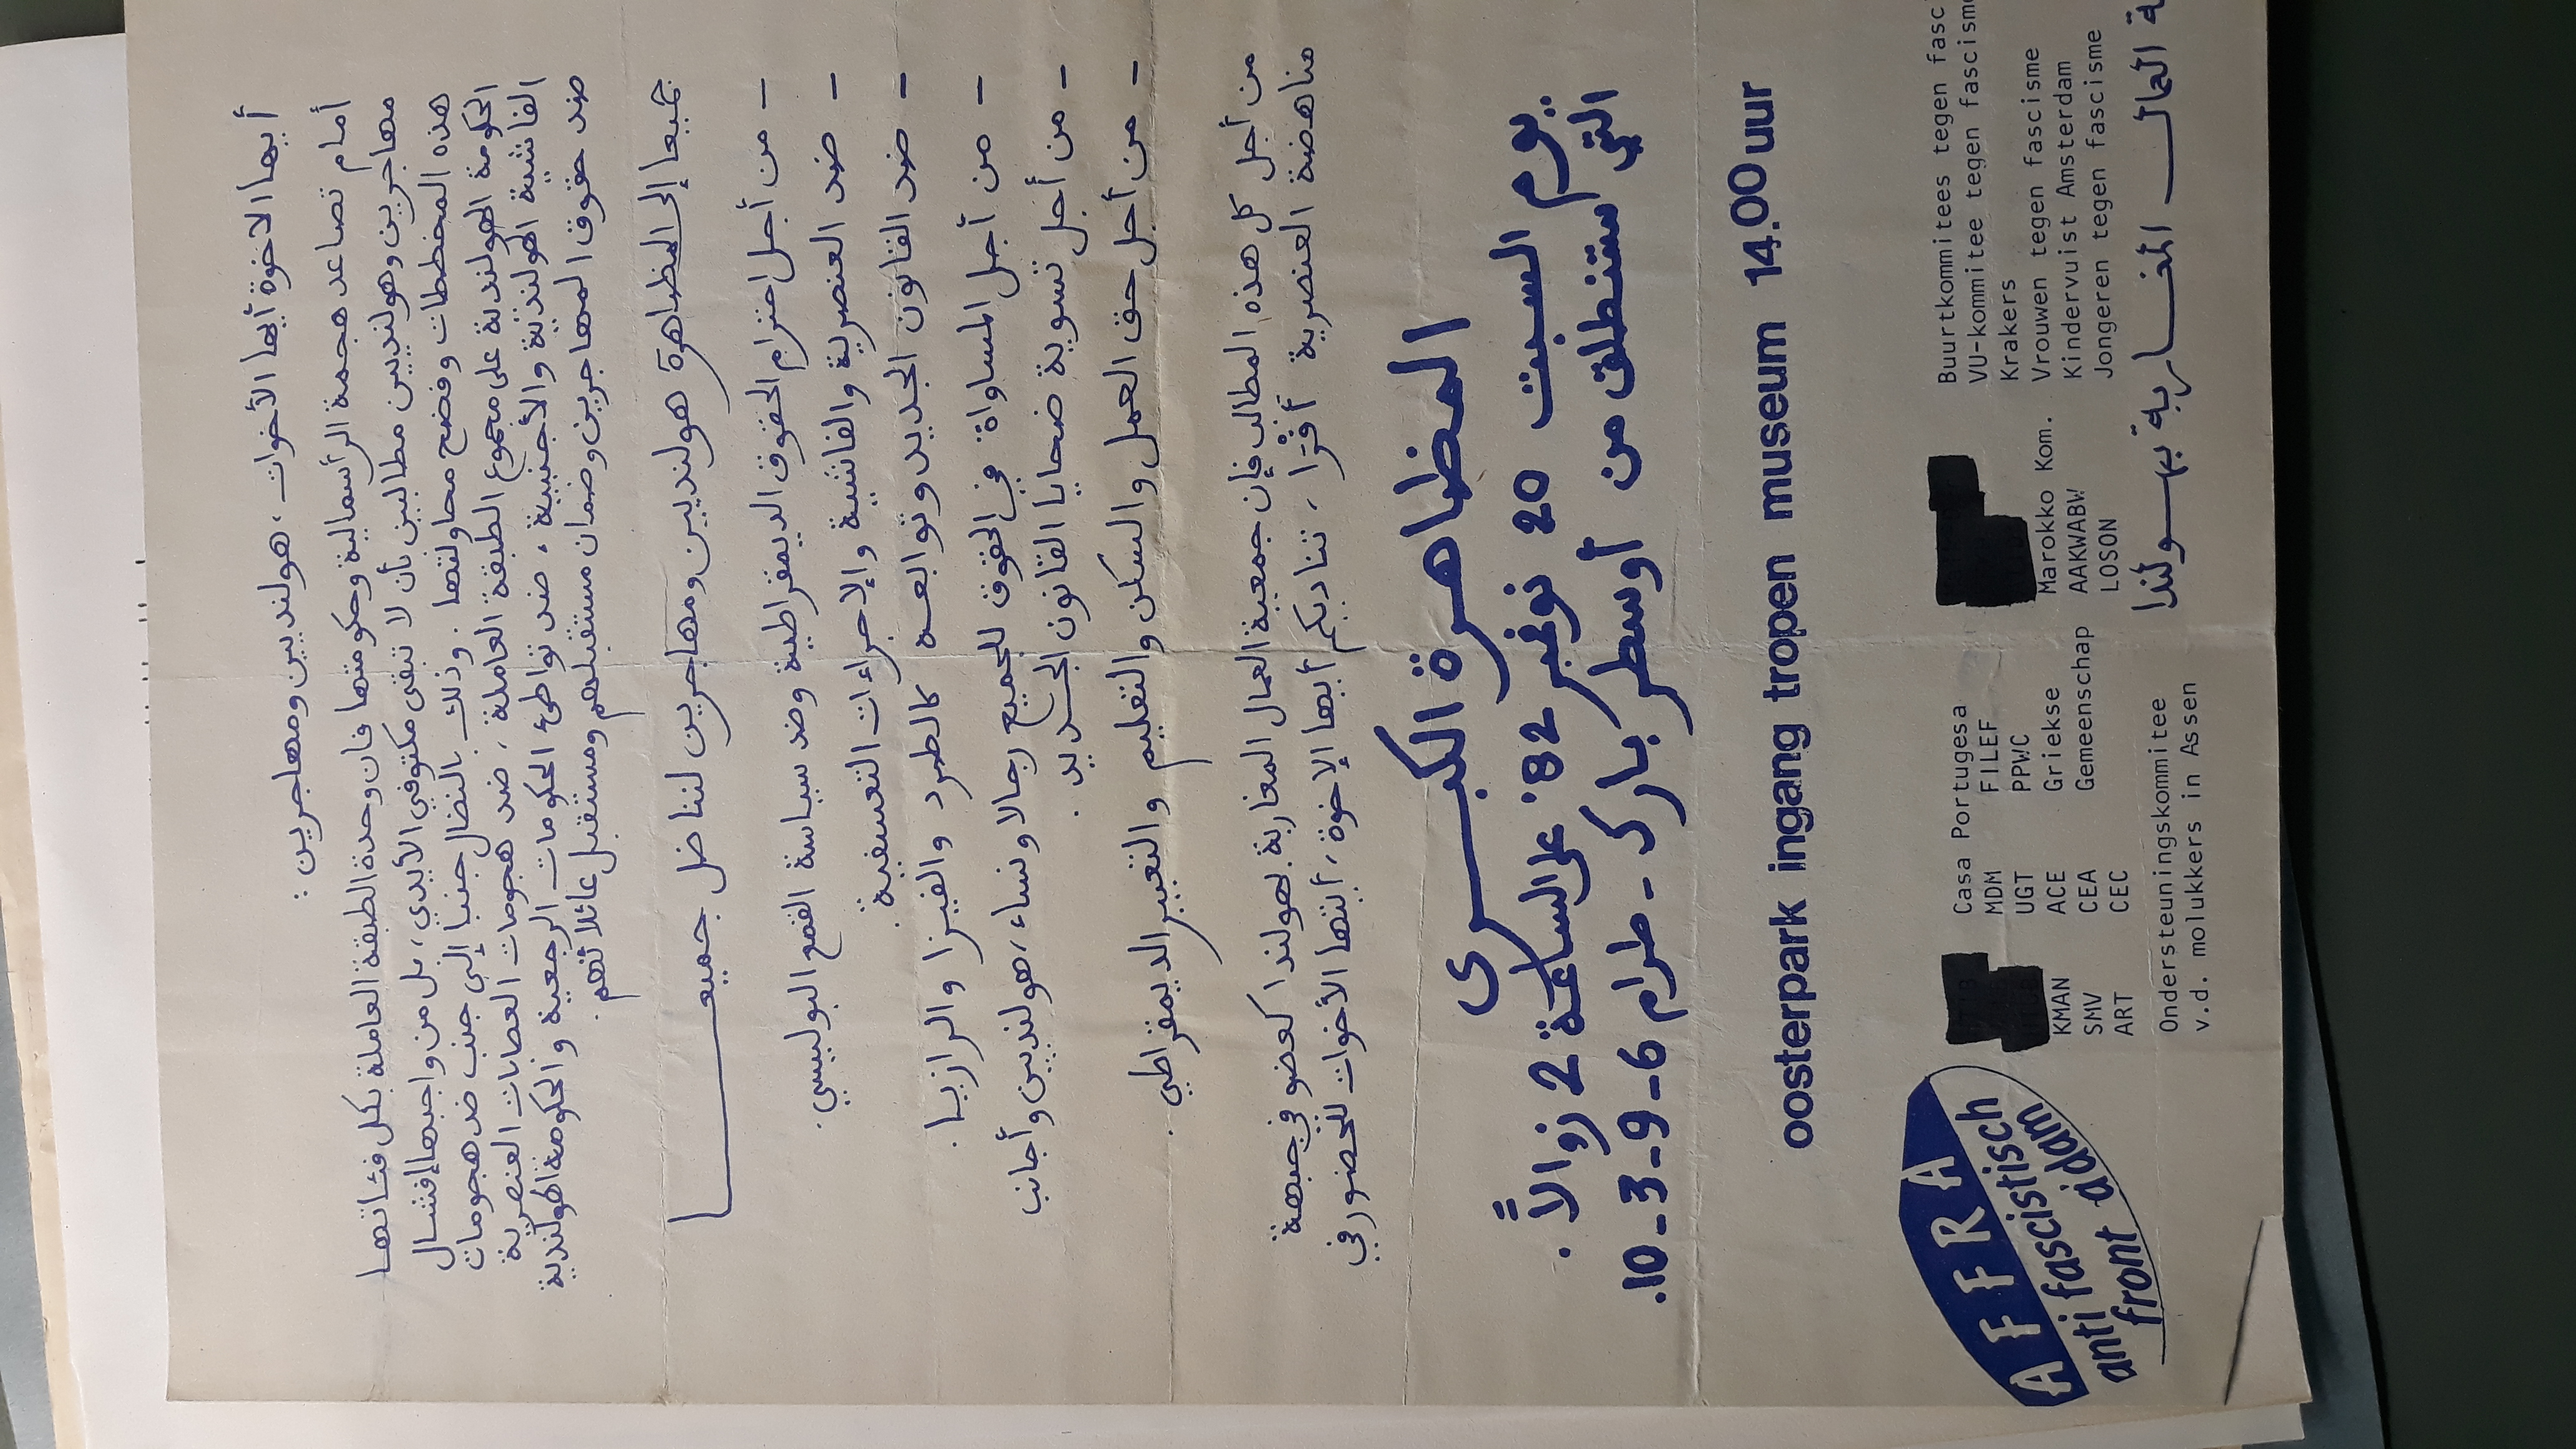 أيها الاخوة أيها الأخوات، هولنديين ومهاجرين :
أمام تصاعد هجمة الرأسمالية وحكومتها فان وحدة الطبقة العاملة بكل فئاتها
مهاجرين وهولنديين مطالبين بأن لا تبقى مكتوفي الأيدي، بل من واجبها إفشال
هذه المخططات وفضح محاولتها. وذلك بالنضال جنبا إلى جنب ضد هجومات
الحكومة الهولندية على مجموع الطبقة العاملة، ضد هجومات العصابات العنصرية
الفاشية الهولندية والأجنبية، ضد تواطئ الحكومات الرجعية والحكومة الهولندية
ضد حقوق المهاجرين وضمان مستقبلهم ومستقبل عائلاتهم.
جميعا إلى المظاهرة هولنديين ومهاجرين لنناضل جميعا
– من أجل احترام الحقوق الديمقراطية وضد سياسة القمع البوليسي.
– ضد العنصرية والفاشية والإجراءات التعسفية.
– ضد القانون الجديد وتوابعه كالطرد والفيزا والرازيا.
– من أجل المساواة في الحقوق للجميع رجالا ونساء، هولنديين وأجانب
– من أجل تسوية ضحايا القانون الجديد.
– من أجل حق العمل والسكن والتعليم والتعبير الديمقراطي.
من أجل كل هذه المطالب فإن جمعية العمال المغاربة بهولندا كعضو في جبهة
مناهضة العنصرية أفْرا، تناديكم أيها الإخوة، أيتها الأخوات للحضور في
المظاهرة الكبرى
يوم السبت 20 نونمبر 82' على الساعة 2 زوالاً.
التي ستنطلق من أوسطر بارك - طرام 6-9-3-10.
oosterpark ingang tropen museum 14.00 uur
AFFRA
anti fascistisch
front a'dam
KMAN
SMV
ART
Ondersteuningskommitee
v.d. molukkers in Assen
Casa Portugesa
MDM FILEF
UGT PPWC
ACE Griekse
CEA Gemeenschap
CEC
Marokko Kom.
AAKWABW
LOSON
Buurtkommittees tegen
VU-kommitee tegen
Krakers
Vrouwen tegen fascisme
Kindervuist Amsterdam
Jongeren tegen fascisme
العمال المغاربة بهولندا